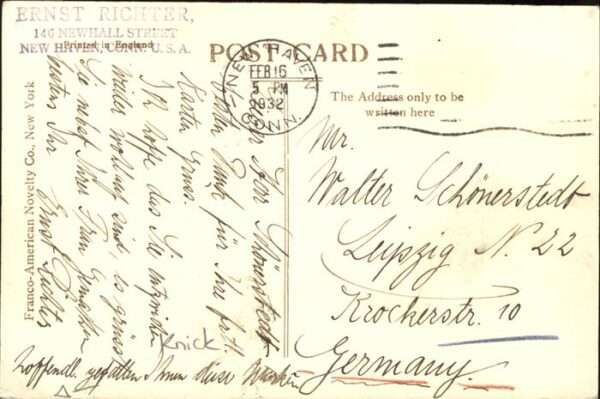 ERNST RICHTER,
146 NEWHALL STREET
NEW HAVEN, CONN. U. S. A.
Printed in England
POST CARD
NEW HAVEN
FEB 16
5 PM
1932
CONN.
The Address only to be
written here
Franco-American Novelty Co., New York
Herr Schönerstedt
für Ihre frdl.
Karten Gruss.
Ich hoffe das Sie
weiter wohlauf sind, es grüsst
Sie nebst Ihrer Frau Gemahlin
bestens Ihr Ernst Richter
Knick
Hoffendl. gefallen Ihnen diese Marken
Mr.
Walter Schönerstedt
Leipzig N. 22
Krockerstr. 10
Germany.